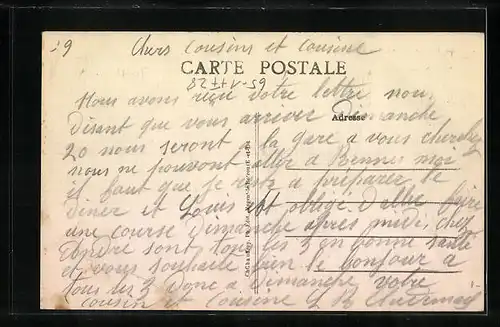 29 Chers cousins et cousine
CARTE POSTALE
Nous avons reçu votre lettre nou
Adresse
disant que vous arriver Dimanche
20 nous seront a la gare a vous cherchez
nous ne pouvont aller a Rennes moi
il faut que je reste a préparer le
diner et Louis est obligé d'aller faire
une course Dimanche après midi, chez
André sont tous les 3 en bonne santé
et vous souhaite bien le bonjour a
tous les 3 Donc a dimanche votre
cousin et cousine